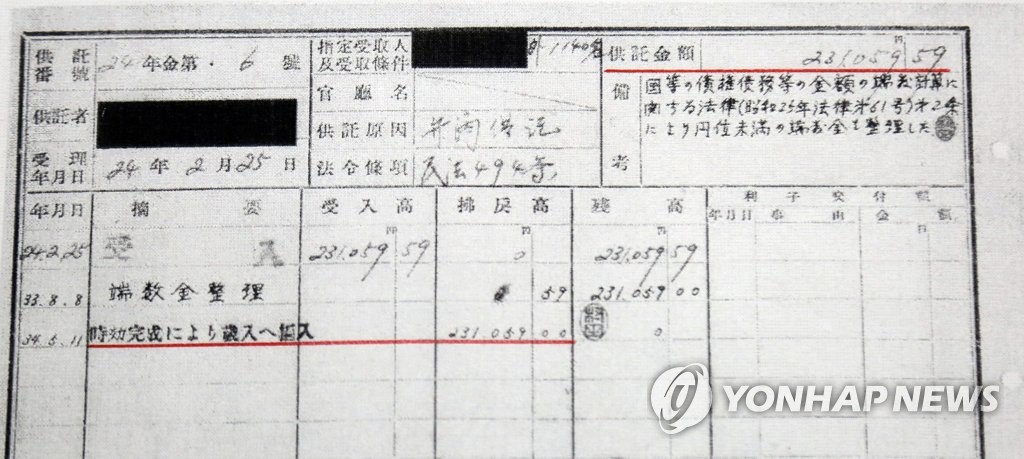 供託番號 24年金第・6號
指定受取人及受取條件 外1140名
供託金額 円 231,059 59
供託者
官廳名
備考
國等の債権債務等の金額の端数計算に
関する法律(昭和25年法律第61号)第2条
により円位未満の端数金を整理した
供託原因
受理年月日 24年2月25日
法令條項 民法494条
年月日 摘要 受入高 拂戻高 残高 利子交付額
年月日 事由 金額
24.2.25 受入 231,059 59 0 231,059 59
33.8.8 端数金整理 59 231,059 00
34.5.11 時効完成により歳入へ納入 231,059 00 0
YONHAP NEWS